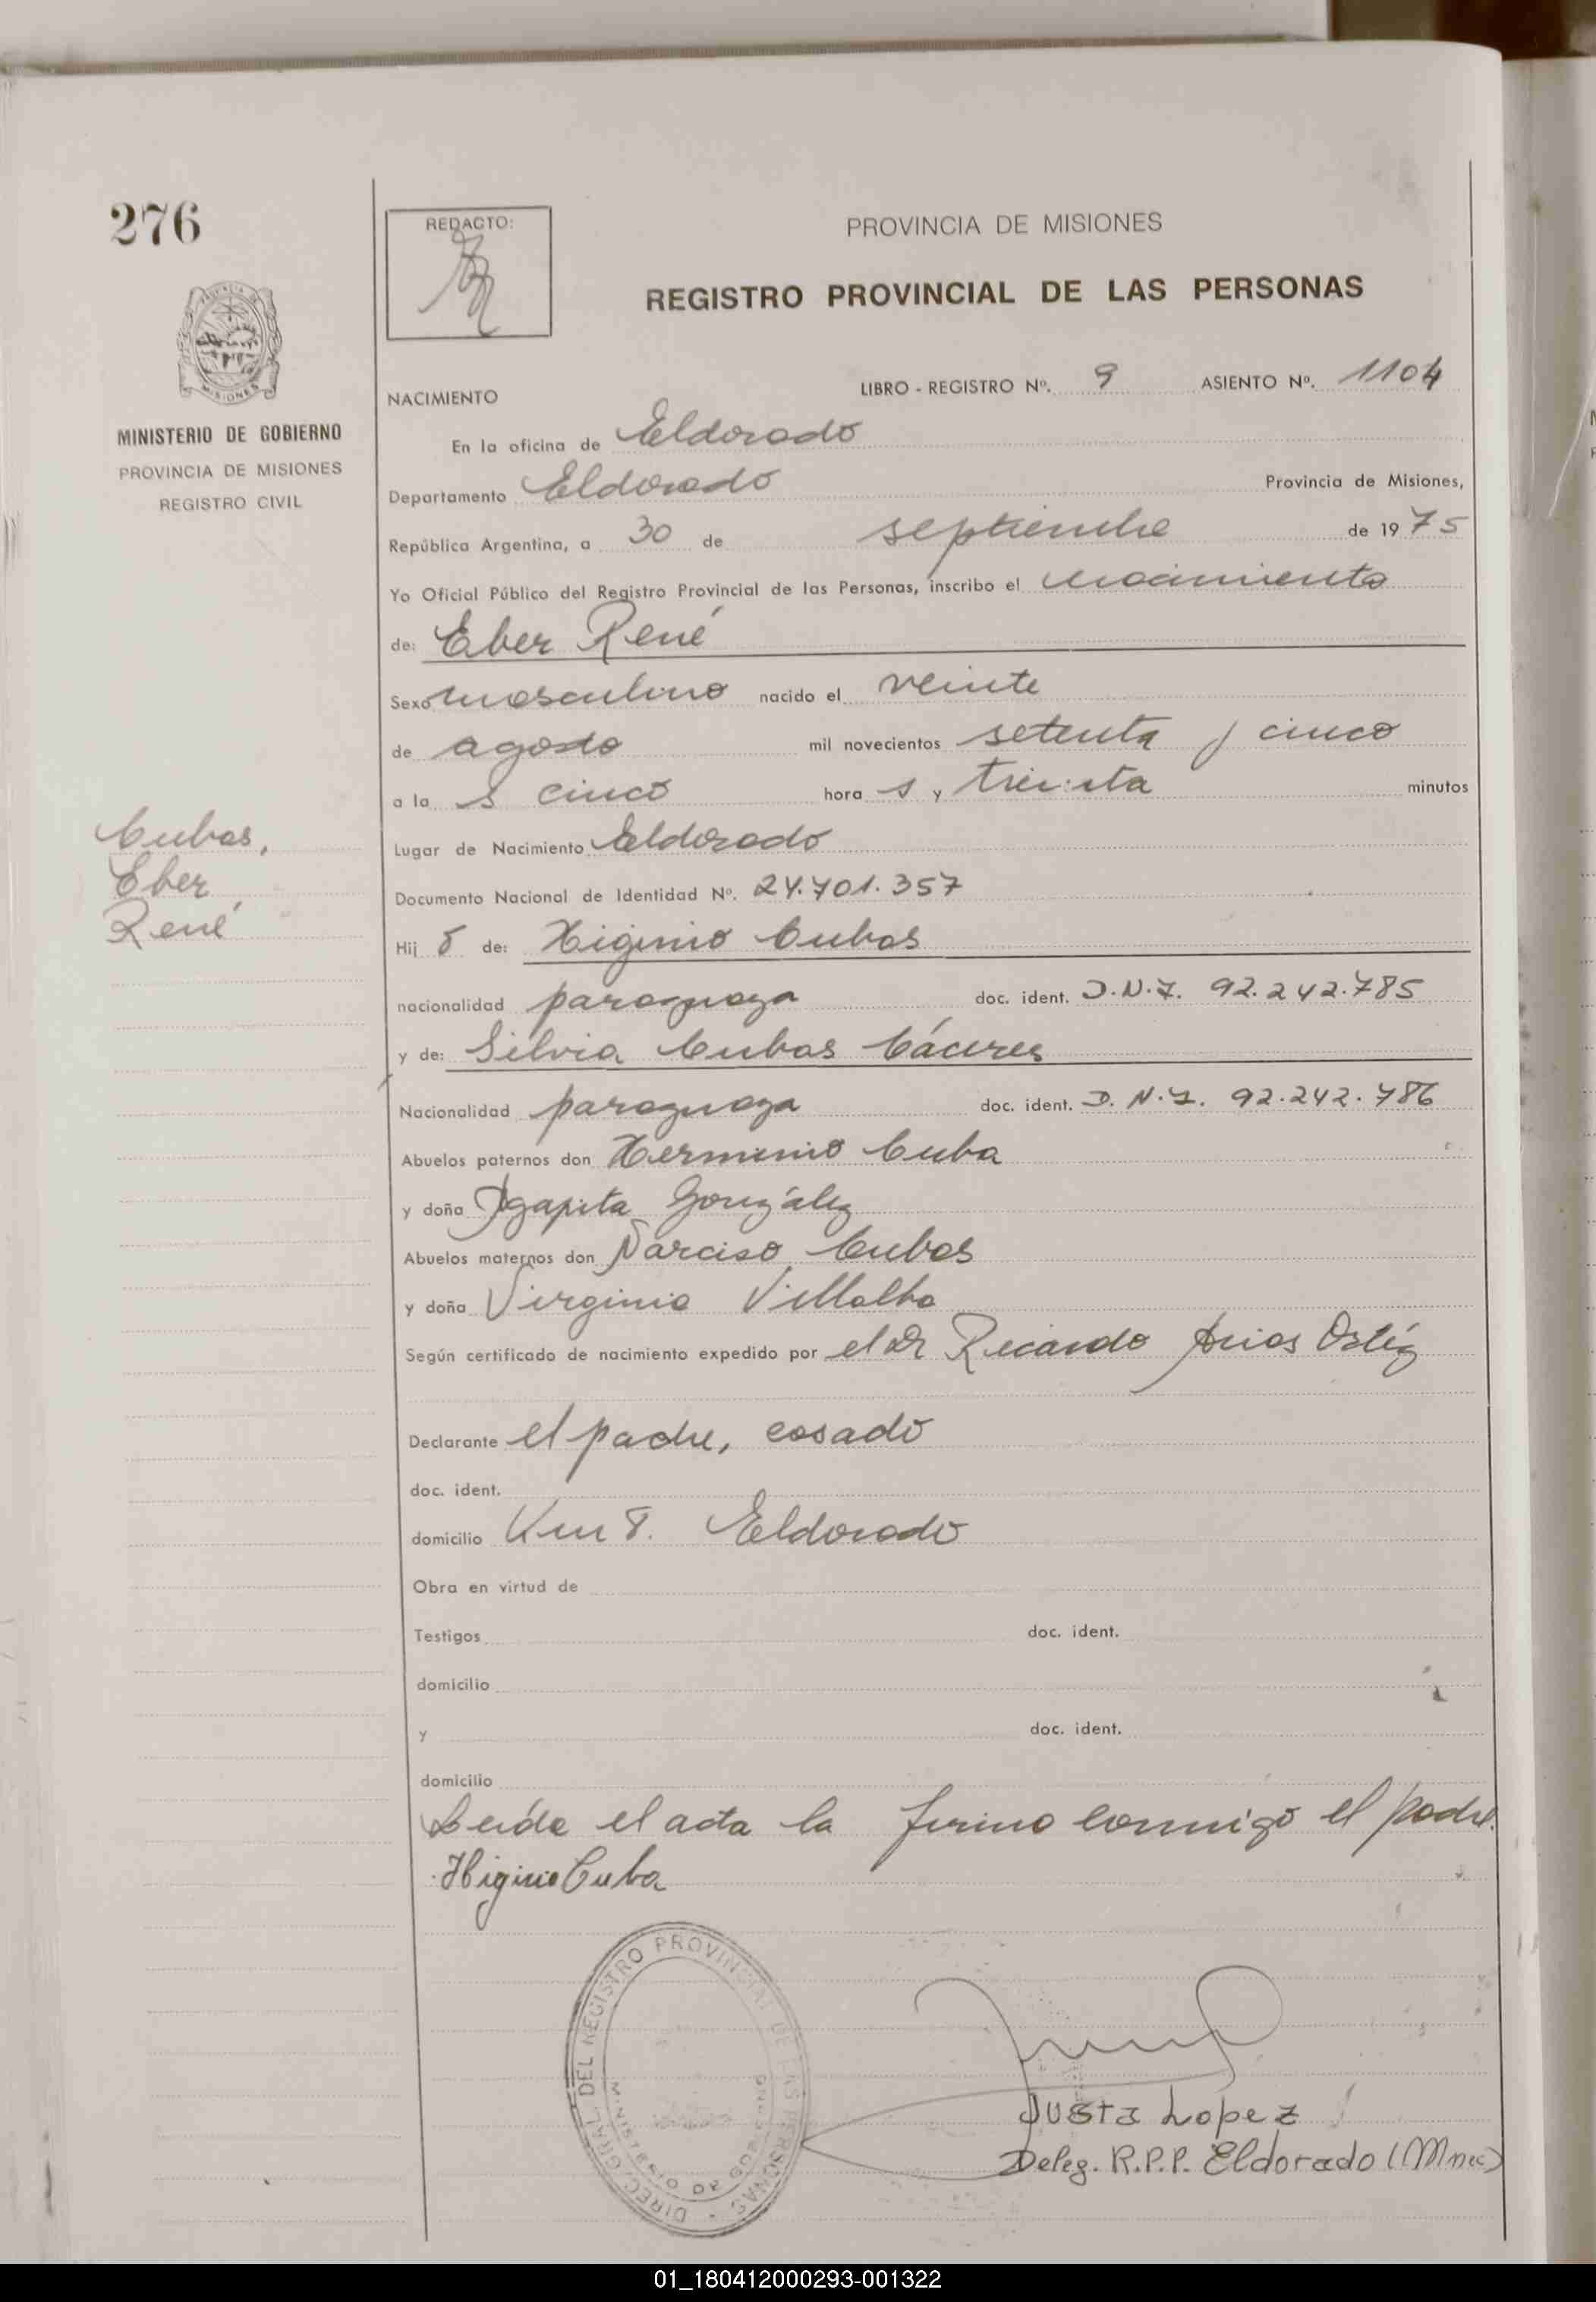 276
REDACTO:
PROVINCIA DE MISIONES
REGISTRO PROVINCIAL DE LAS PERSONAS
MINISTERIO DE GOBIERNO
PROVINCIA DE MISIONES
REGISTRO CIVIL
NACIMIENTO
LIBRO - REGISTRO Nº. 9 ASIENTO Nº. 1104
En la oficina de Eldorado
Departamento Eldorado Provincia de Misiones,
República Argentina, a 30 de septiembre de 1975
Yo Oficial Público del Registro Provincial de las Personas, inscribo el nacimiento
de: Eber René
Sexo masculino nacido el veinte
de agosto mil novecientos setenta y cinco
a la s cinco hora s y treinta minutos
Cubas,
Eber
René
Lugar de Nacimiento Eldorado
Documento Nacional de Identidad Nº. 24.701.357
Hij o de: Higinio Cubas
nacionalidad paraguaya doc. ident. D.N.I. 92.242.785
y de: Silvia Cubas Cáceres
Nacionalidad paraguaya doc. ident. D.N.I. 92.242.786
Abuelos paternos don Herminio Cuba
y doña Agapita González
Abuelos maternos don Narciso Cubas
y doña Virginia Villalba
Según certificado de nacimiento expedido por el Dr Ricardo Arias
Declarante el padre, casado
doc. ident.
domicilio Km 8. Eldorado
Obra en virtud de
Testigos doc. ident.
domicilio
y doc. ident.
domicilio
Leída el acta la firma conmigo el padre.
Higinio Cuba
DIREC. GRAL. DEL REGISTRO PROVINCIAL DE LAS PERSONAS
MINISTERIO DE GOBIERNO
Justa Lopez
Deleg. R.P.P. Eldorado (Mnes)
01_180412000293-001322